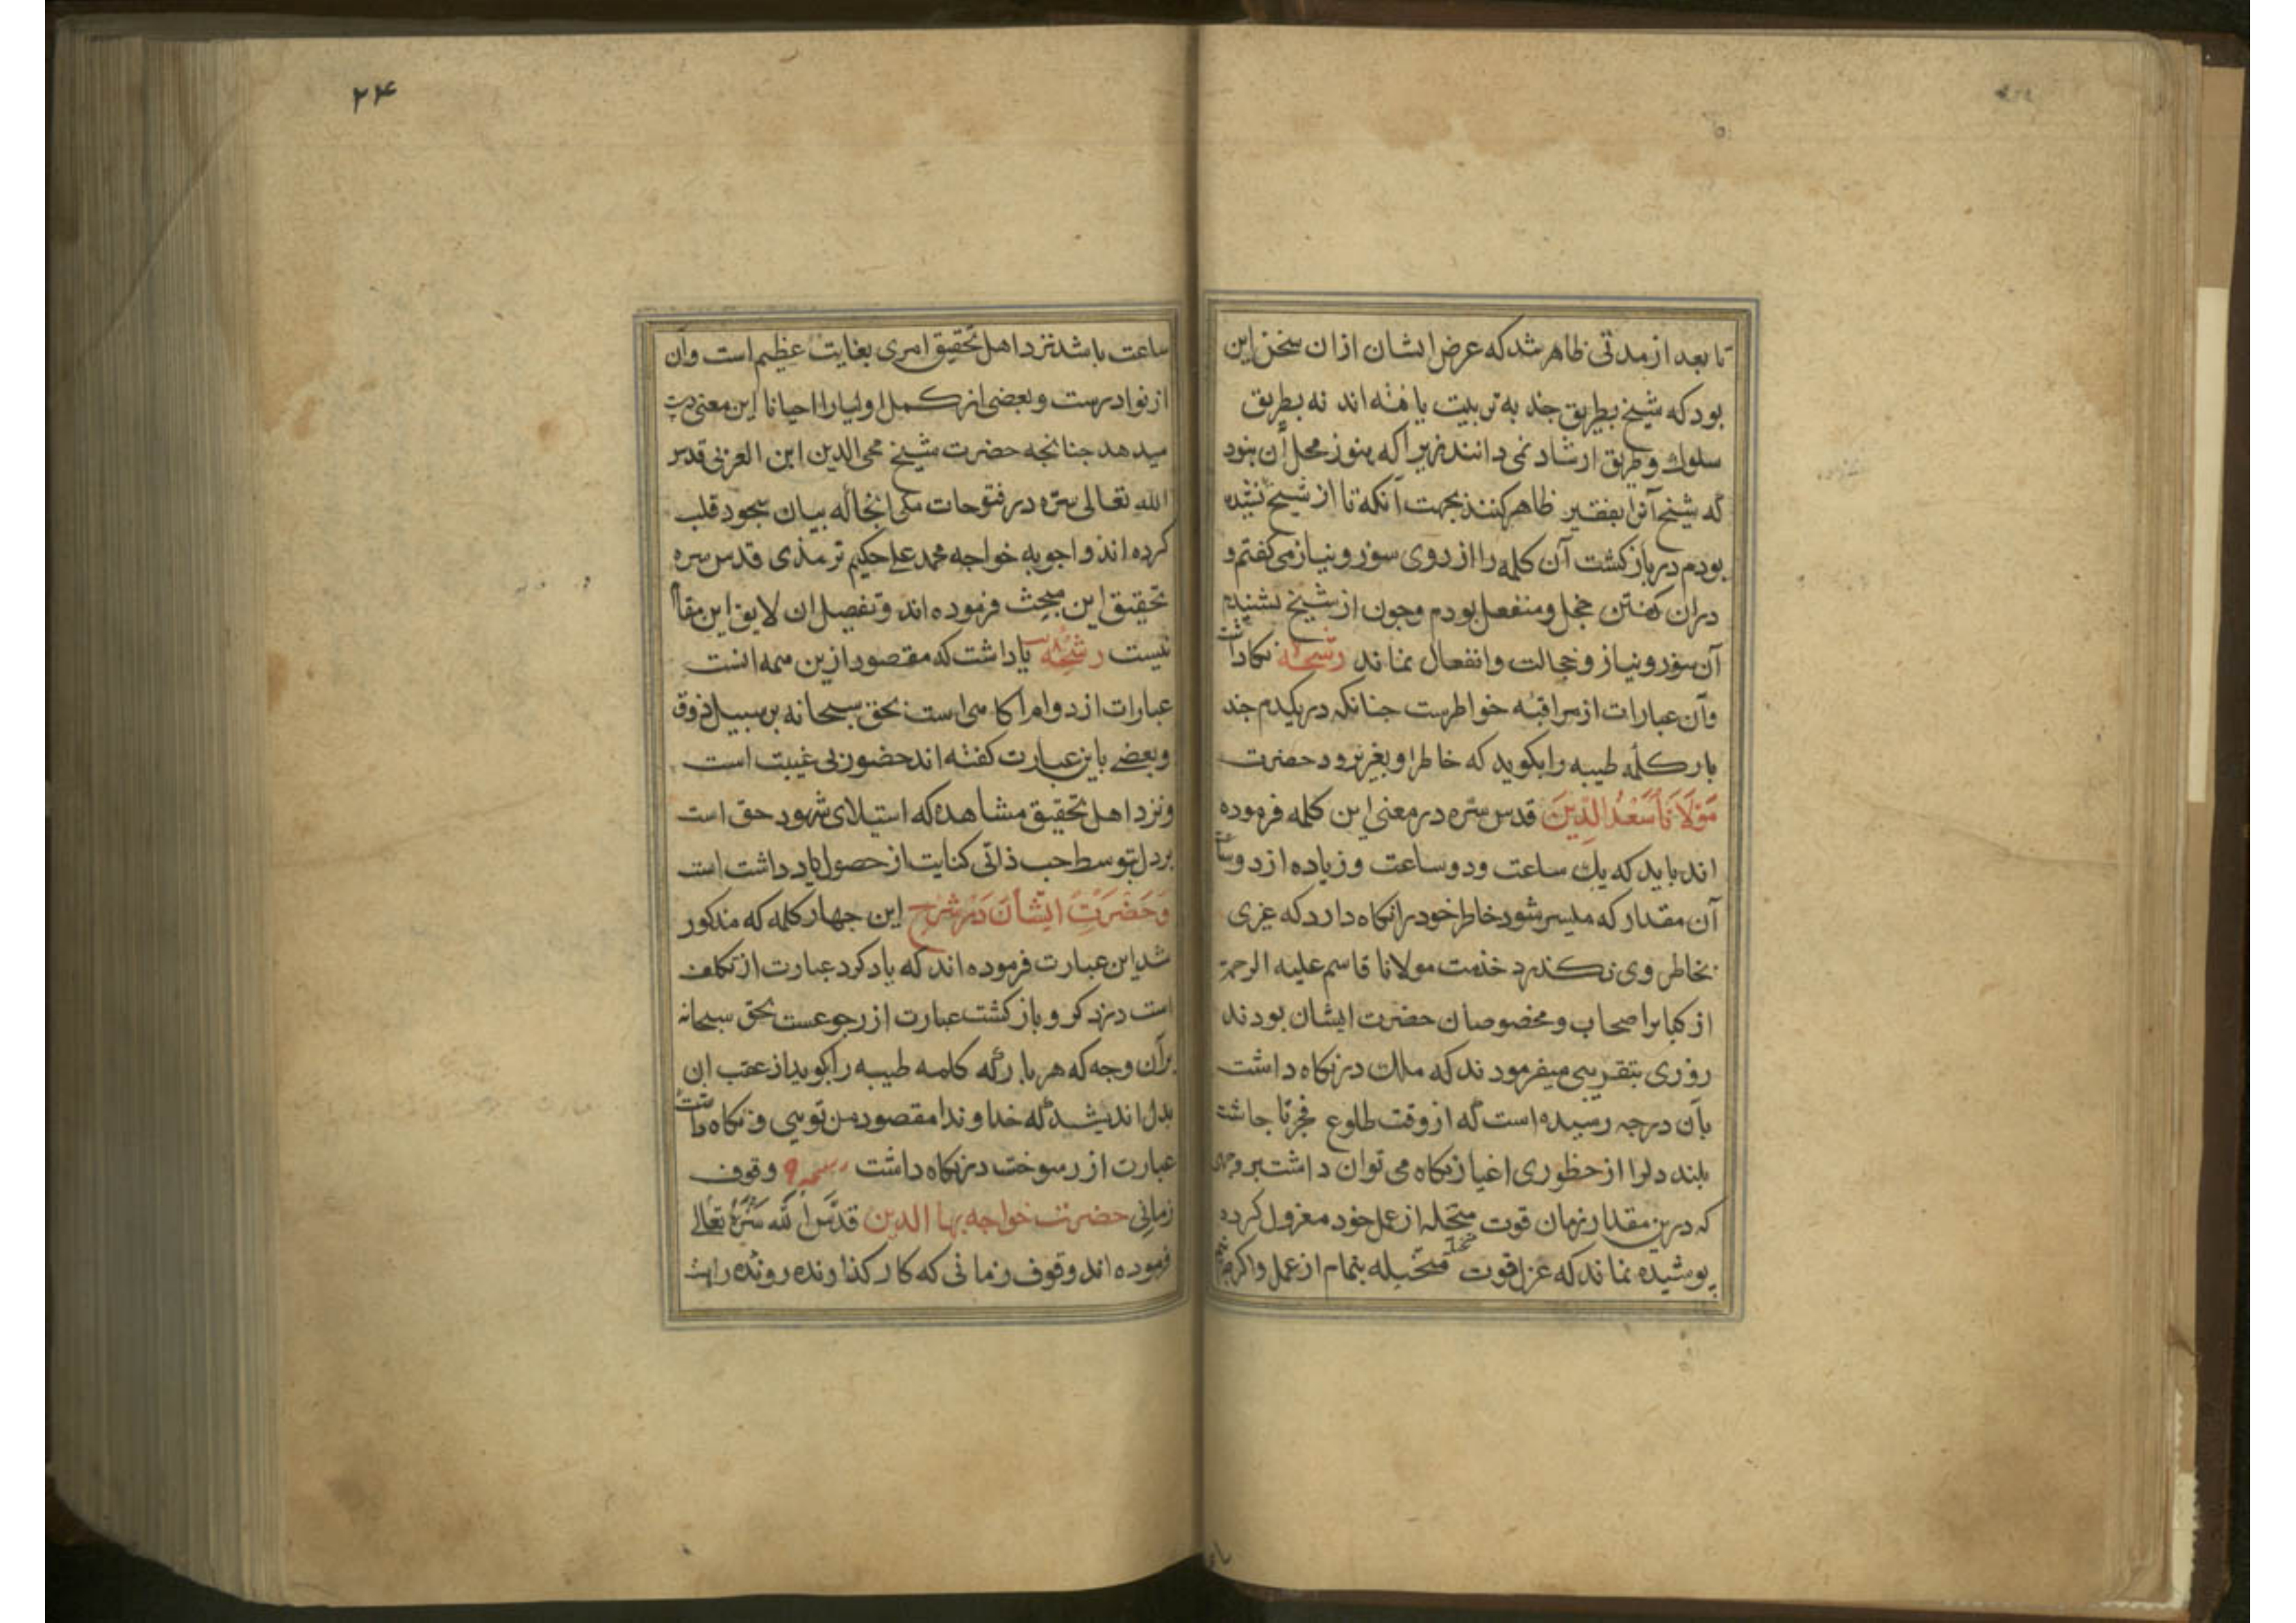 تا بعد از مدتی ظاهر شد که عرض ایشان ازان سخن این
بود که شیخ بطریق جذبه تربیت یافته اند نه بطریق
سلوك و طریق ارشاد نمی دانند زیرا که هنوز محل آن نبود
که شیخ آنرا بفقیر ظاهر کنند بجهت آنکه تا از شیخ نشنیده
بودم در بازکشت آن کلمه را از روی سوز و نیاز می کفتم و
دران کفتن خجل و منفعل بودم و جون از شیخ بشنیدم
آن سوز و نیاز و خجالت و انفعال نماند رشحه نکاداشت
وآن عبارات از مراقبه خواطرست جنانکه در یکدم جند
بار کلمه طیبه را بکوید که خاطر او بغیر نرود حضرت
مَوْلَانَا سَعْدُ الدِّينَ قدس سره در معنی این کلمه فرموده
اند باید که یك ساعت و دو ساعت و زیاده از دو ساعت
آن مقدار که میسر شود خاطر خود را نکاه دارد که غیری
بخاطر وی نکذرد خذمت مولانا قاسم علیه الرحمة
از کبار اصحاب و مخصوصان حضرت ایشان بودند
روزی بتقریبی میفرمودند که ملکت در نکاه داشت
بآن درجه رسیده است که از وقت طلوع فجر تا جاشت
بلند دلرا از حظوری اغیار نکاه می توان داشت بر وجهی
که درین مقدار زمان قوت متخیله از عمل خود معزول کرده
پوشیده نماند که عزل قوت متخیله بتمام از عمل و اکرچه نیم
۲۴
ساعت باشد نزد اهل تحقیق امری بغایت عظیم است وآن
از نوادرست و بعضی از کمل اولیا را احیانا این معنی دست
میدهد جنانجه حضرت شیخ محی الدین ابن العربی قدس
الله تعالی سره در فتوحات مکی انجا که بیان سجود قلب
کرده اند و اجوبه خواجه محمد علی حکیم ترمذی قدس سره
تحقیق این مبحث فرموده اند و تفصیل ان لایق این مقام
نیست رشحه یاداشت که مقصود ازین همه انست
عبارات از دوام آکاهی است بحق سبحانه بر سبیل ذوق
و بعضی باین عبارت کفته اند حضور بی غیبت است
و نزد اهل تحقیق مشاهده که استیلای شهود حق است
بر دل بتوسط حب ذاتی کنایت از حصول یاد داشت است
وَحَضْرَتِ ایشَانَ دَرْ شَرْحِ این جهار کلمه که مذکور
شد این عبارت فرموده اند که یاد کرد عبارت از تکلف
است در ذکر و بازکشت عبارت از رجوعست بحق سبحانه
برآن وجه که هر بار که کلمه طیبه را بکوید از عقب ان
بدل اندیشد که خداوندا مقصود من تویی و نکاه داشت
عبارت از رسوخت در نکاه داشت رشحه و قوف
زمانی حضرت خواجه بها الدین قدّس الله سرّه تعالی
فرموده اند وقوف زمانی که کار کذارنده رونده راهست